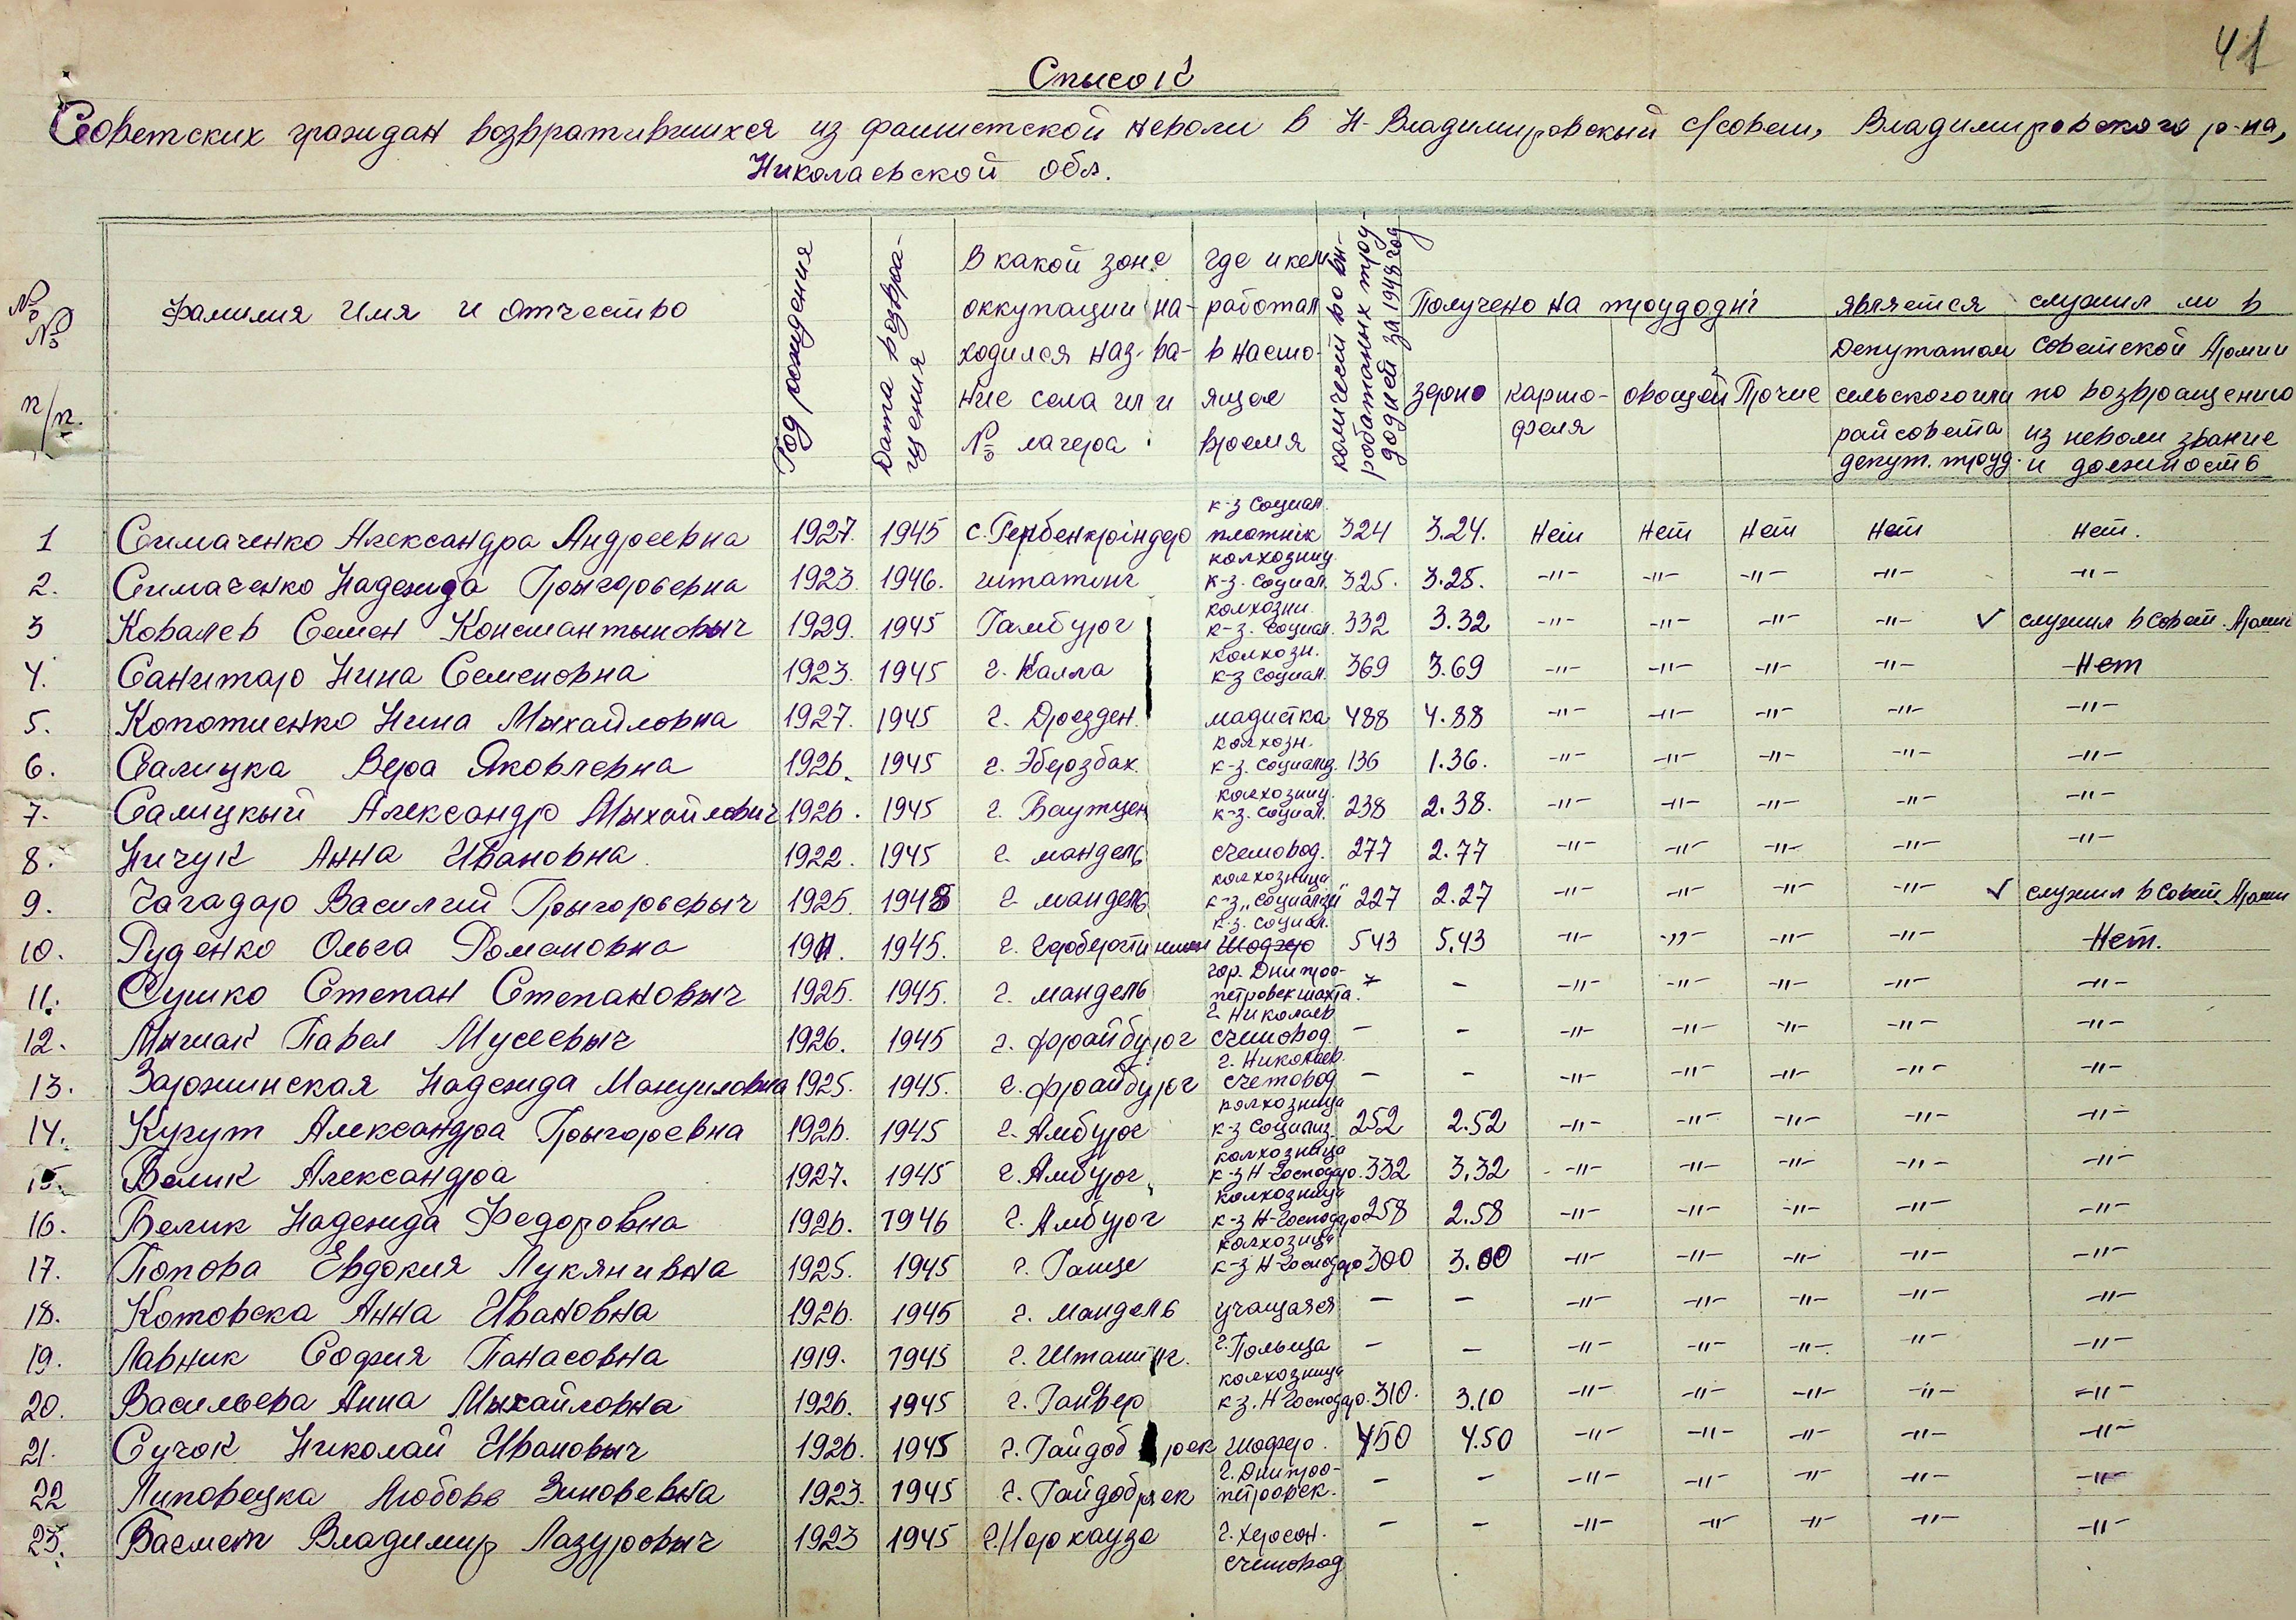 41
Список
Советских граждан возвратившихся из фашистской неволи в Н-Владимировскый с/совет, Владимировского р-на,
Николаевской обл.
№№ п/п. | Фамилия Имя и Отчество | Год рождения | Дата возвращения | В какой зоне оккупации находился наз-вание села или № лагера | Где и кем работал в настоящее время | количество выработанных трудодней за 1948 год | Получено на трудодні: зерно | картофеля | овощей | Прочие | является депутатом сельского или райсовета депут. труд. | служил ли в Советской Армии по возвращению из неволи звание и должность
1 Симаченко Александра Андреевна 1927. 1945 с. Гербенкріндер к-з Социал. плотнік 324 3.24. Нет Нет Нет Нет Нет.
2. Симаченко Надежда Грыгорьевна 1923. 1946. штатинг колхозниц. к-з. Социал. 325. 3.25. -"- -"- -"- -"- -"-
3 Ковалев Семен Константыновыч 1929. 1945 Гамбург колхозни. к-з. Социал. 332 3.32 -"- -"- -"- -"- ✓ служил в Совет. Армии
4. Санитар Нина Семеновна 1923. 1945 г. Калла колхозн. к-з Социал. 369 3.69 -"- -"- -"- -"- Нет
5. Копотиенко Нина Мыхайловна 1927. 1945 г. Дрезден. 488 4.88 -"- -"- -"- -"- -"-
6. Салицка Вера Яковлевна 1926. 1945 г. Эберзбах. колхозн. к-з. Социализ. 136 1.36. -"- -"- -"- -"- -"-
7. Салицкый Александр Мыхайлович 1926. 1945 г. Баутцен колхозниц. к-з. Социал. 238 2.38. -"- -"- -"- -"- -"-
8. Ничук Анна Ивановна 1922. 1945 г. мандель счетовод. 277 2.77 -"- -"- -"- -"- -"-
9. Чагадар Василий Грыгорьевыч 1925. 1945 г. мандель колхозница к-з „Социалізм" 227 2.27 -"- -"- -"- -"- ✓ служил в Совет. Армии
10. Руденко Ольга Романовна 1945. г. к-з. Социал. 543 5.43 -"- -"- -"- -"- Нет.
11. Сушко Степан Степановыч 1925. 1945. г. мандель гор. Днипропетровск шахта. - -"- -"- -"- -"- -"-
12. Мышак Павел Мусеевыч 1926. 1945 г. Фрайбург г. Николаев счетовод. - - -"- -"- -"- -"- -"-
13. Заржинская Надежда Мануиловна 1925. 1945. г. Фрайбург г. Николаев. счетовод - - -"- -"- -"- -"- -"-
14. Кугут Александра Грыгоревна 1926. 1945 г. Амбург колхозница к-з Социализ. 252 2.52 -"- -"- -"- -"- -"-
15. Велик Александра 1927. 1945 г. Амбург колхозница к-з Н-Господар. 332 3.32 -"- -"- -"- -"- -"-
16. Велик Надежида Федоровна 1926. 1946 г. Амбург колхозница к-з Н-Господар 258 2.58 -"- -"- -"- -"- -"-
17. Попова Евдокия Лукянивна 1925. 1945 г. Гаице колхозница к-з Н-Господар 300 3.00 -"- -"- -"- -"- -"-
18. Которска Анна Ивановна 1926. 1945 г. Мандель учащаяся - - -"- -"- -"- -"- -"-
19. Лавник София Панасовна 1919. 1945 г. Штатинг. г. Польща - - -"- -"- -"- -"- -"-
20. Васильева Анна Мыхайловна 1926. 1945 г. Ганвер колхозница к-з. Н-Господар. 310. 3.10 -"- -"- -"- -"- -"-
21. Сучок Николай Ивановыч 1926. 1945 г. Гайдоб рек шофер. 450 4.50 -"- -"- -"- -"- -"-
22 Липовецка Любовь Зиновевна 1923. 1945 г. Гайдобрек г. Днипропетровск. - - -"- -"- -"- -"- -"-
23. Васмет Владимир Лазуровыч 1923 1945 г. Норкаузе г. Херсон. счетовод - - -"- -"- -"- -"- -"-